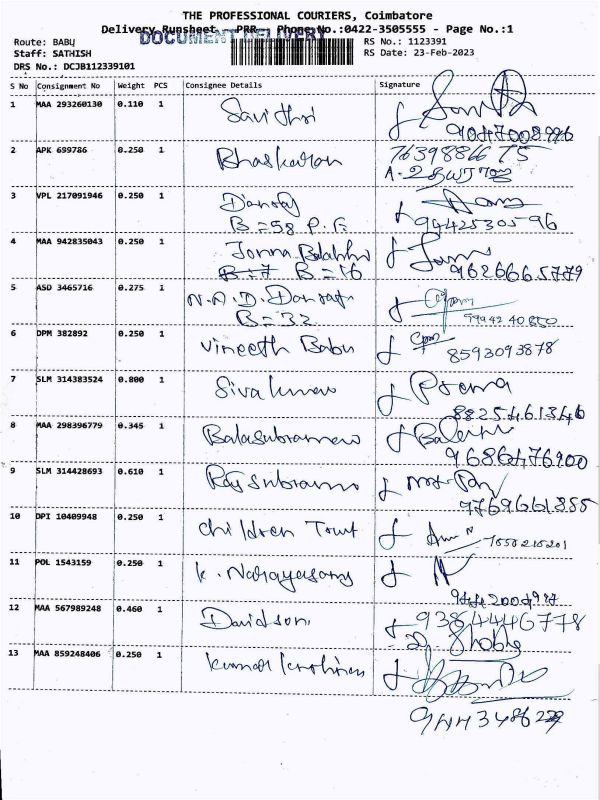 THE PROFESSIONAL COURIERS, Coimbatore
Delivery Runsheet - PRR - Phone No.:0422-3505555 - Page No.:1
DOCUMENT DELIVERY
Route: BABU
RS No.: 1123391
Staff: SATHISH
RS Date: 23-Feb-2023
DRS No.: DCJB112339101
S No Consignment No Weight PCS Consignee Details Signature
1 MAA 293260130 0.110 1 Savithri
2 APK 699786 0.250 1 Bhaskaran
3 VPL 217091946 0.250 1
B=58 P.F
9442530596
4 MAA 942835043 0.250 1
B=7 B=16 9626665779
5 ASD 3465716 0.275 1 N.A.D.
B=32 9994240850
6 DPM 382892 0.250 1 Vineeth Babu 8593093878
7 SLM 314383524 0.800 1 Sivakumar Prema
8825461346
8 MAA 298396779 0.345 1 Balasubramani
9686476900
9 SLM 314428693 0.610 1
9769661885
10 DPI 10409948 0.250 1 Children Trust
11 POL 1543159 0.250 1 K. Narayasamy
12 MAA 567989248 0.460 1 Davidson 9384446778
13 MAA 859248406 0.250 1